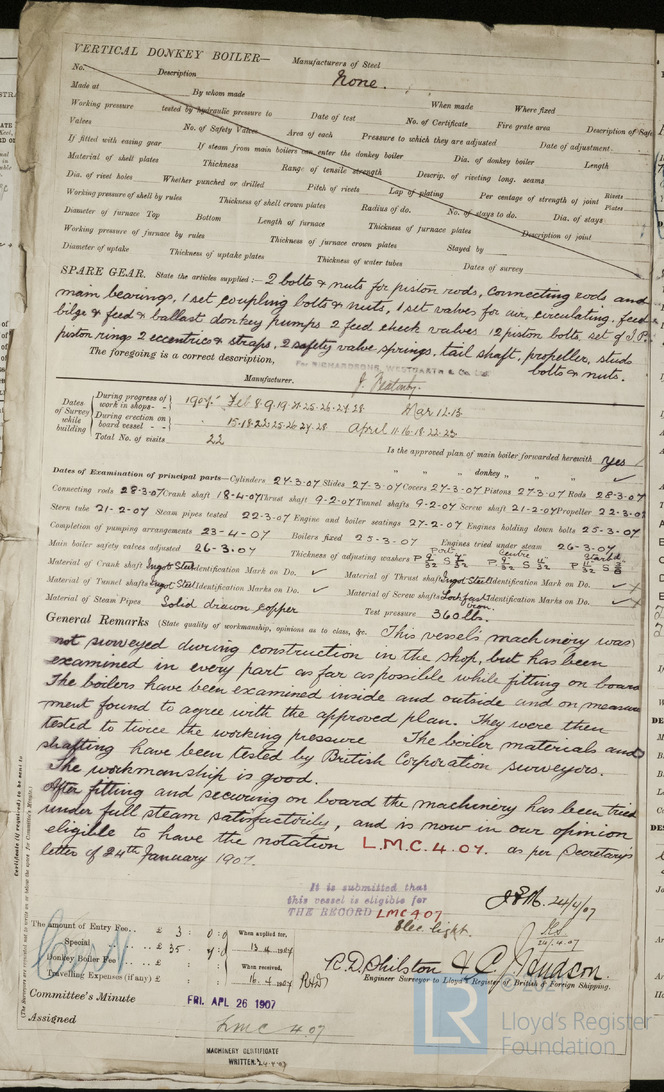 VERTICAL DONKEY BOILER— Manufacturers of Steel None.
No. Description
Made at By whom made When made Where fixed
Working pressure tested by hydraulic pressure to Date of test No. of Certificate Fire grate area Description of Safe
Valves No. of Safety Valves Area of each Pressure to which they are adjusted Date of adjustment
If fitted with easing gear If steam from main boilers can enter the donkey boiler Dia. of donkey boiler Length
Material of shell plates Thickness Range of tensile strength Descrip. of riveting long. seams
Dia. of rivet holes Whether punched or drilled Pitch of rivets Lap of plating Per centage of strength of joint Rivets Plates
Working pressure of shell by rules Thickness of shell crown plates Radius of do. No. of stays to do. Dia. of stays
Diameter of furnace Top Bottom Length of furnace Thickness of furnace plates Description of joint
Working pressure of furnace by rules Thickness of furnace crown plates Stayed by
Diameter of uptake Thickness of uptake plates Thickness of water tubes Dates of survey
SPARE GEAR. State the articles supplied:— 2 bolts & nuts for piston rods, connecting rods and
main bearings, 1 set coupling bolts & nuts, 1 set valves for air, circulating, feed
bilge & feed & ballast donkey pumps 2 feed check valves 12 piston bolts, set of I.P.
piston rings 2 eccentrics & straps, 2 safety valve springs, tail shaft, propeller, studs
bolts & nuts.
The foregoing is a correct description,
For RICHARDSONS, WESTGARTH & Co. Ltd.
Manufacturer.
Dates of Survey while building
During progress of work in shops - - 1907. Feb 8.9.19.21.25.26.27.28 Mar 12.13
During erection on board vessel - - 15.18.22.25.26.27.28 April 11.16.18.22.23
Total No. of visits 22
Is the approved plan of main boiler forwarded herewith yes
" " " donkey " "
Dates of Examination of principal parts—Cylinders 27-3-07 Slides 27-3-07 Covers 27-3-07 Pistons 27-3-07 Rods 28-3-07
Connecting rods 28-3-07 Crank shaft 18-4-07 Thrust shaft 9-2-07 Tunnel shafts 9-2-07 Screw shaft 21-2-07 Propeller 22-3-07
Stern tube 21-2-07 Steam pipes tested 22-3-07 Engine and boiler seatings 27-2-07 Engines holding down bolts 25-3-07
Completion of pumping arrangements 23-4-07 Boilers fixed 25-3-07 Engines tried under steam 26-3-07
Main boiler safety valves adjusted 26-3-07 Thickness of adjusting washers Port P 9/32 S 7/32 Centre P S Starbd P S
Material of Crank shaft Ingot Steel Identification Mark on Do. ✓ Material of Thrust shaft Ingot Steel Identification Mark on Do. ✓
Material of Tunnel shafts Ingot Steel Identification Marks on Do. ✓ Material of Screw shafts iron. Identification Marks on Do. ✓
Material of Steam Pipes Solid drawn copper Test pressure 360 lbs.
General Remarks (State quality of workmanship, opinions as to class, &c. This vessels machinery was
not surveyed during construction in the shop, but has been
examined in every part as far as possible while fitting on board
The boilers have been examined inside and outside and on measure
ment found to agree with the approved plan. They were then
tested to twice the working pressure The boiler materials and
shafting have been tested by British Corporation surveyors.
The workmanship is good.
After fitting and securing on board the machinery has been tried
under full steam satisfactorily, and is now in our opinion
eligible to have the notation L.M.C. 4.07. as per Secretary's
letter of 24th January 1907.
Certificate (if required) to be sent to
(The Surveyors are requested not to write on or below the space for Committee's Minute.)
It is submitted that
this vessel is eligible for
THE RECORD LMC 4.07
Elec. light.
24/4/07
The amount of Entry Fee.. £ 3 : 0 : 0 When applied for,
Special .. .. £ 35 : 4 : 0 13.4.1907
Donkey Boiler Fee .. .. £ : : When received,
Travelling Expenses (if any) £ : : 16.4.1907
R. D. Philston & C. J. Hudson.
Engineer Surveyor to Lloyd's Register of British & Foreign Shipping.
Committee's Minute FRI. APL 26 1907
Assigned LMC 4.07
MACHINERY CERTIFICATE
WRITTEN. 24.4.07
LR
Lloyd's Register
Foundation